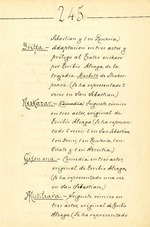 245.
Sebastian y 1 en Renteria)
Adaptacion en tres actos y
prólogo al Teatro eusкaro
por Toribio Alzaga de la
tragedia Macbeth de Shakes-
peare. (Se ha representado 1
veces en San Sebastian)
Juguete cómico
en tres actos, original de
Toribio Alzaga. (Se ha repre-
sentado 6 veces: 2 en San Sebastian
1 en Irun, 1 en Renteria, 1 en
Oñate y 1 en Azcoitia.)
Comedia, en tres actos,
original de Toribio Alzaga.
(Se ha representado una vez
en San Sebastian.)
Juguete cómico en
tres actos, original de Toribio
Alzaga (Se ha representado